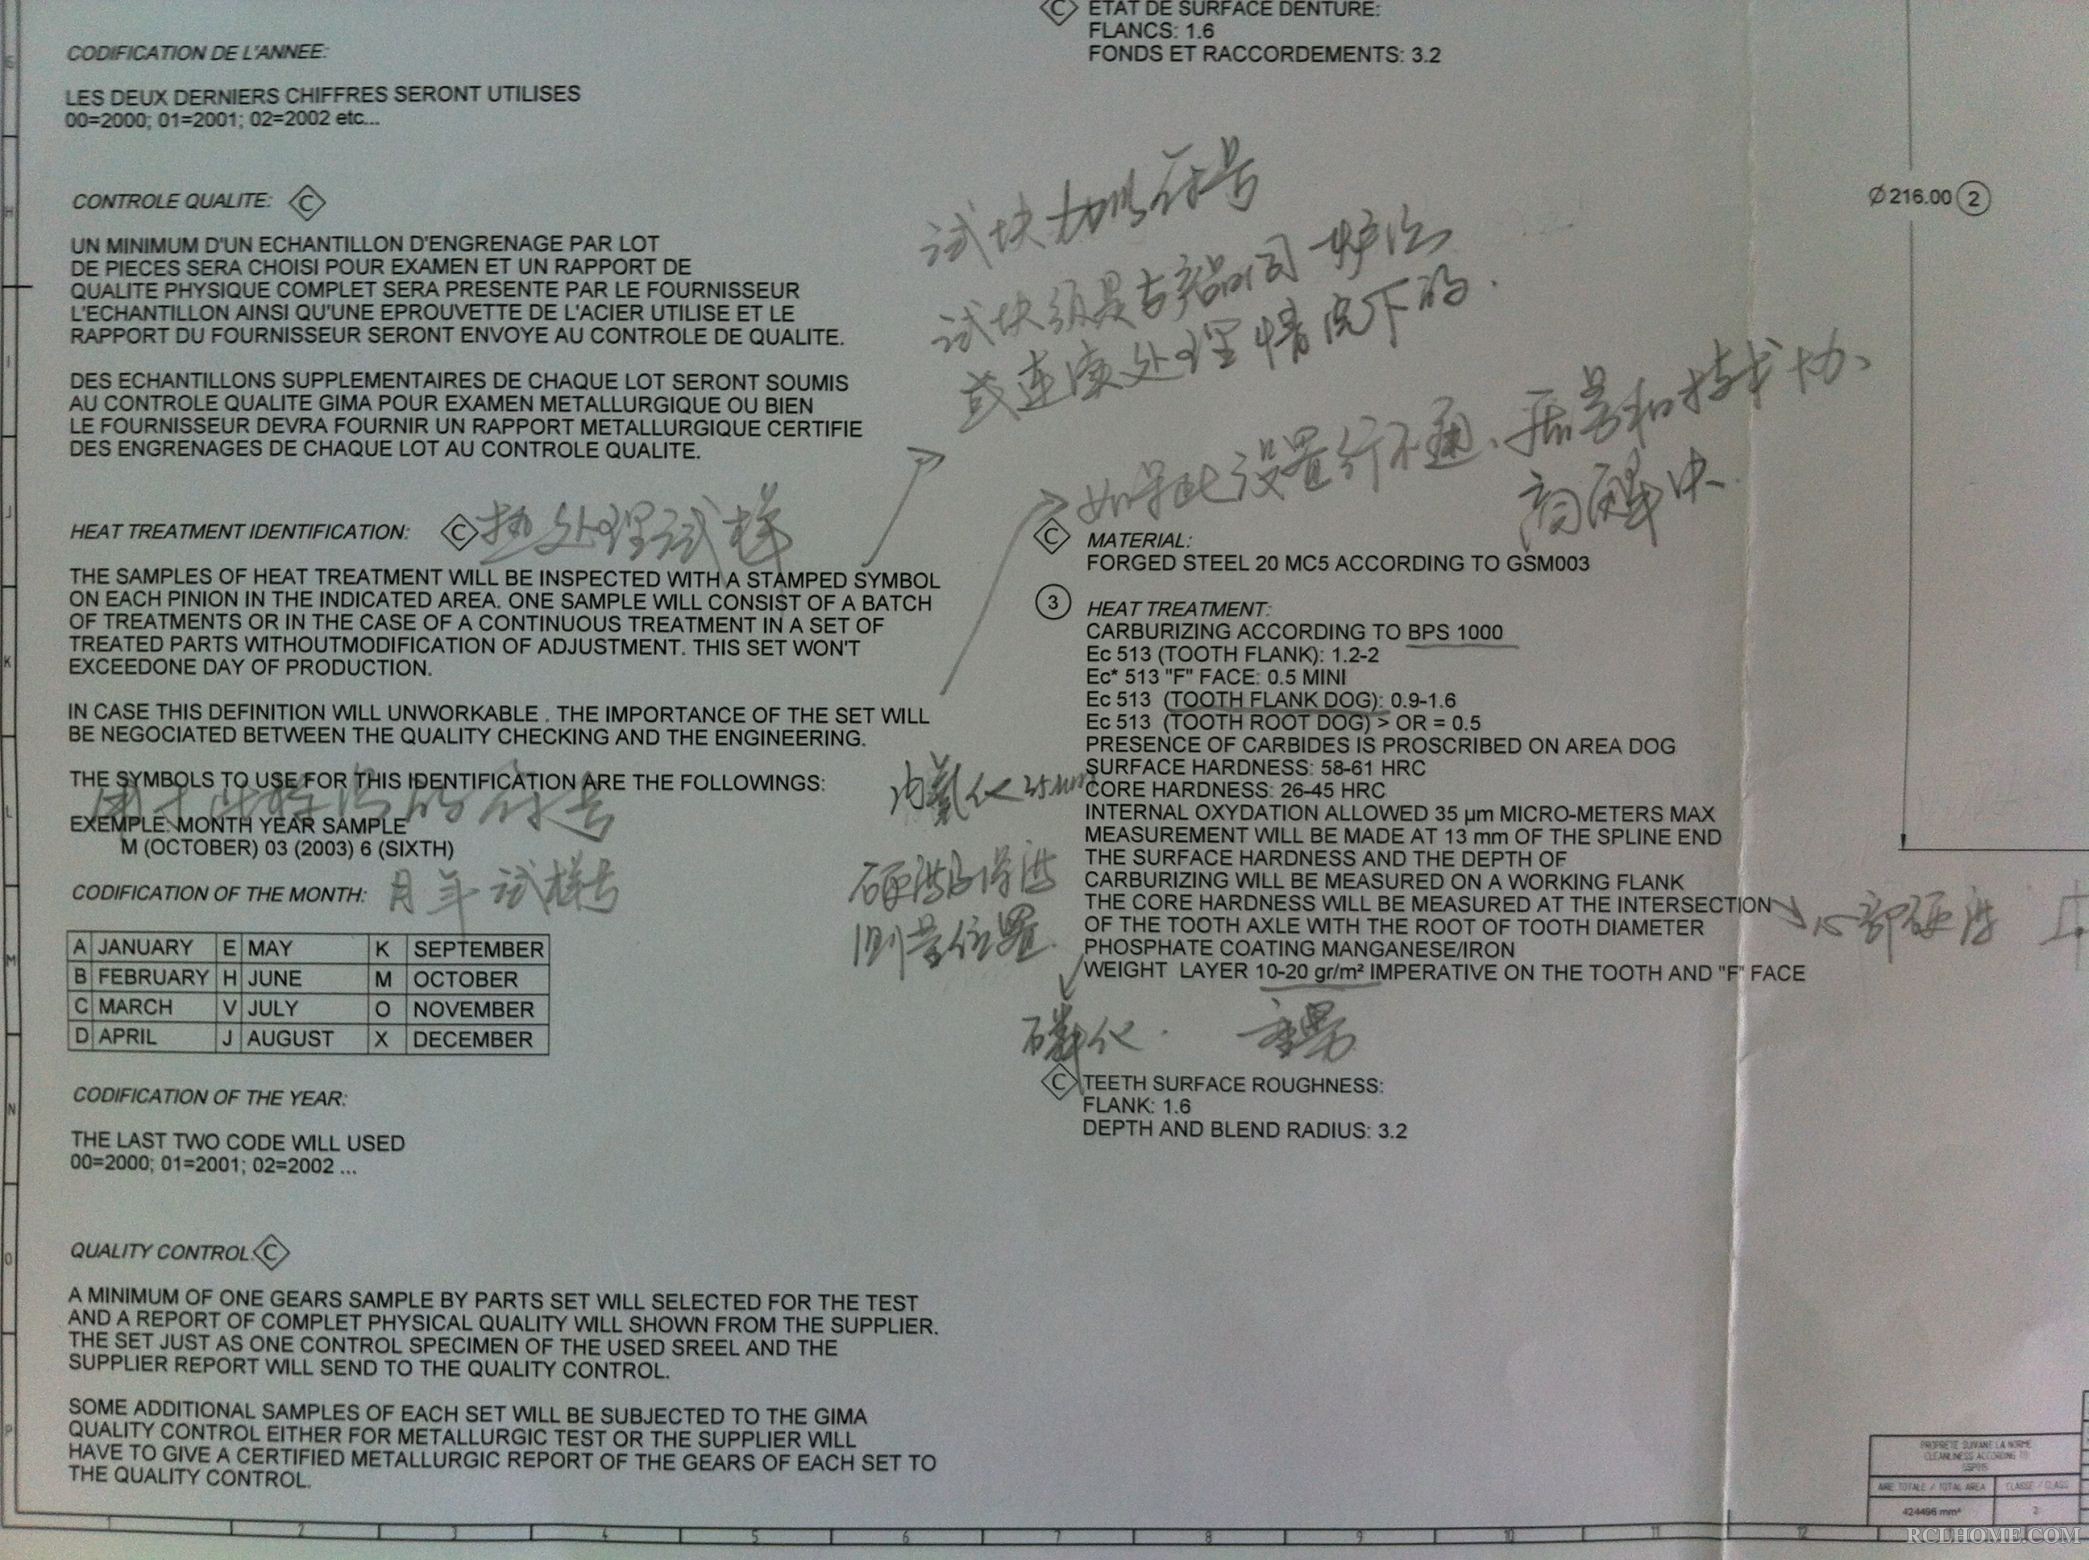 CODIFICATION DE L'ANNEE:
LES DEUX DERNIERS CHIFFRES SERONT UTILISES
00=2000; 01=2001; 02=2002 etc...
CONTROLE QUALITE: C
UN MINIMUM D'UN ECHANTILLON D'ENGRENAGE PAR LOT
DE PIECES SERA CHOISI POUR EXAMEN ET UN RAPPORT DE
QUALITE PHYSIQUE COMPLET SERA PRESENTE PAR LE FOURNISSEUR
L'ECHANTILLON AINSI QU'UNE EPROUVETTE DE L'ACIER UTILISE ET LE
RAPPORT DU FOURNISSEUR SERONT ENVOYE AU CONTROLE DE QUALITE.
DES ECHANTILLONS SUPPLEMENTAIRES DE CHAQUE LOT SERONT SOUMIS
AU CONTROLE QUALITE GIMA POUR EXAMEN METALLURGIQUE OU BIEN
LE FOURNISSEUR DEVRA FOURNIR UN RAPPORT METALLURGIQUE CERTIFIE
DES ENGRENAGES DE CHAQUE LOT AU CONTROLE QUALITE.
HEAT TREATMENT IDENTIFICATION: C 热处理试样
THE SAMPLES OF HEAT TREATMENT WILL BE INSPECTED WITH A STAMPED SYMBOL
ON EACH PINION IN THE INDICATED AREA. ONE SAMPLE WILL CONSIST OF A BATCH
OF TREATMENTS OR IN THE CASE OF A CONTINUOUS TREATMENT IN A SET OF
TREATED PARTS WITHOUTMODIFICATION OF ADJUSTMENT. THIS SET WON'T
EXCEEDONE DAY OF PRODUCTION.
IN CASE THIS DEFINITION WILL UNWORKABLE . THE IMPORTANCE OF THE SET WILL
BE NEGOCIATED BETWEEN THE QUALITY CHECKING AND THE ENGINEERING.
THE SYMBOLS TO USE FOR THIS IDENTIFICATION ARE THE FOLLOWINGS:
的符号
EXEMPLE: MONTH YEAR SAMPLE
M (OCTOBER) 03 (2003) 6 (SIXTH)
CODIFICATION OF THE MONTH: 月 年 试样号
A JANUARY E MAY K SEPTEMBER
B FEBRUARY H JUNE M OCTOBER
C MARCH V JULY O NOVEMBER
D APRIL J AUGUST X DECEMBER
CODIFICATION OF THE YEAR:
THE LAST TWO CODE WILL USED
00=2000; 01=2001; 02=2002 ...
QUALITY CONTROL: C
A MINIMUM OF ONE GEARS SAMPLE BY PARTS SET WILL SELECTED FOR THE TEST
AND A REPORT OF COMPLET PHYSICAL QUALITY WILL SHOWN FROM THE SUPPLIER.
THE SET JUST AS ONE CONTROL SPECIMEN OF THE USED SREEL AND THE
SUPPLIER REPORT WILL SEND TO THE QUALITY CONTROL.
SOME ADDITIONAL SAMPLES OF EACH SET WILL BE SUBJECTED TO THE GIMA
QUALITY CONTROL EITHER FOR METALLURGIC TEST OR THE SUPPLIER WILL
HAVE TO GIVE A CERTIFIED METALLURGIC REPORT OF THE GEARS OF EACH SET TO
THE QUALITY CONTROL.
C ETAT DE SURFACE DENTURE:
FLANCS: 1.6
FONDS ET RACCORDEMENTS: 3.2
试块加以符号
试块须是与产品同一炉次
或连续处理情况下的.
如果此设置行不通、质量和技术协
商解决.
C MATERIAL:
FORGED STEEL 20 MC5 ACCORDING TO GSM003
3 HEAT TREATMENT:
CARBURIZING ACCORDING TO BPS 1000
Ec 513 (TOOTH FLANK): 1.2-2
Ec* 513 "F" FACE: 0.5 MINI
Ec 513 (TOOTH FLANK DOG): 0.9-1.6
Ec 513 (TOOTH ROOT DOG) > OR = 0.5
PRESENCE OF CARBIDES IS PROSCRIBED ON AREA DOG
SURFACE HARDNESS: 58-61 HRC
CORE HARDNESS: 26-45 HRC
内氧化
INTERNAL OXYDATION ALLOWED 35 µm MICRO-METERS MAX
MEASUREMENT WILL BE MADE AT 13 mm OF THE SPLINE END
THE SURFACE HARDNESS AND THE DEPTH OF
CARBURIZING WILL BE MEASURED ON A WORKING FLANK
硬度及深度
测量位置
THE CORE HARDNESS WILL BE MEASURED AT THE INTERSECTION 心部硬度
OF THE TOOTH AXLE WITH THE ROOT OF TOOTH DIAMETER
PHOSPHATE COATING MANGANESE/IRON
WEIGHT LAYER 10-20 gr/m² IMPERATIVE ON THE TOOTH AND "F" FACE
磷化. 重量
C TEETH SURFACE ROUGHNESS:
FLANK: 1.6
DEPTH AND BLEND RADIUS: 3.2
Ø216.00 2
PROPRETE SUIVANT LA NORME
CLEANLINESS ACCORDING TO
AIRE TOTALE / TOTAL AREA CLASSE / CLASS
424496 mm² 2
E
H
I
J
K
L
M
N
O
P
1 2 3 4 5 6 7 8 9 10 11 12
RCLHOME.COM